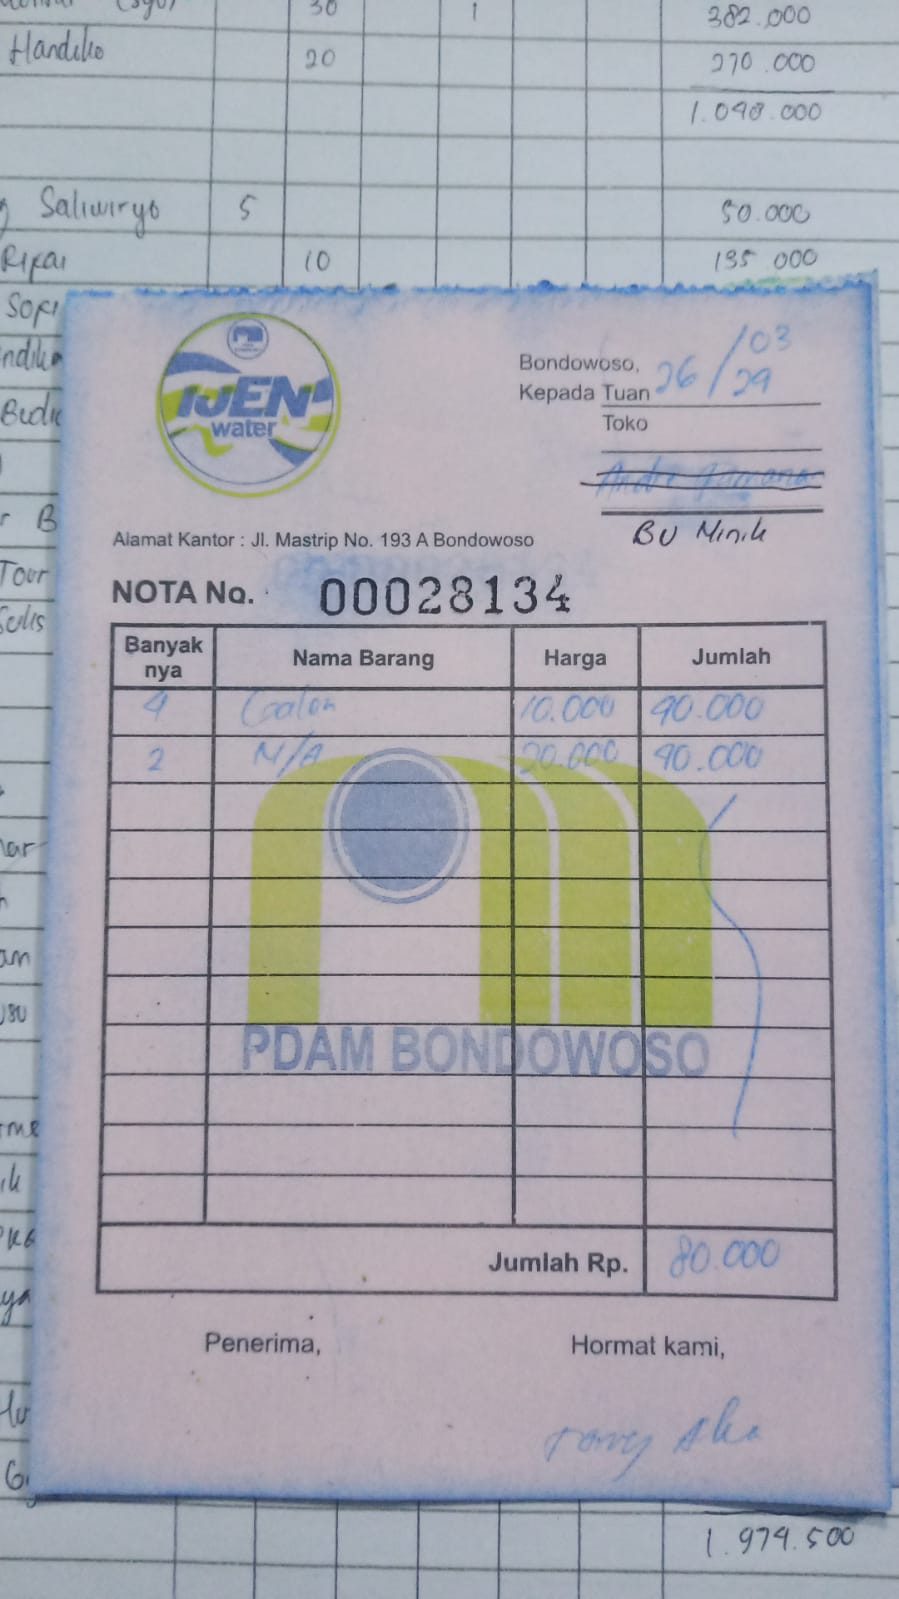 30 1 382.000
Handiko 20 270.000
1.098.000
Saliwiryo 5 50.000
Rifai 10 135 000
IJEN
water
Bondowoso, 26/03
Kepada Tuan 29
Toko
BU Minik
Alamat Kantor : Jl. Mastrip No. 193 A Bondowoso
NOTA No. 00028134
Banyak nya Nama Barang Harga Jumlah
4 Galon 10.000 40.000
2 M/A 20.000 40.000
PDAM BONDOWOSO
Jumlah Rp. 80.000
Penerima, Hormat kami,
1.979.500